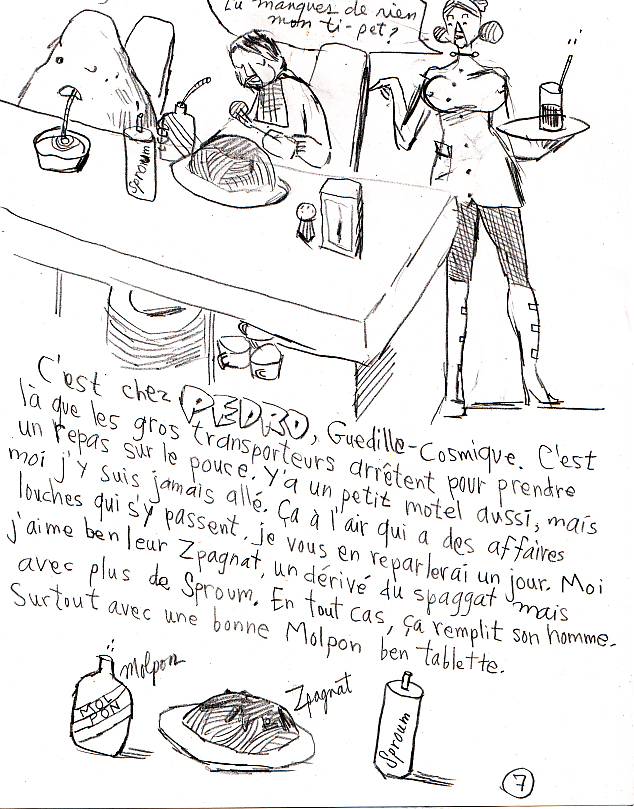 Tu manques de rien
mon ti-pet?
Sproum
C'est chez PEDRO, Guedille-Cosmique. C'est
là que les gros transporteurs arrêtent pour prendre
un repas sur le pouce. Y'a un petit motel aussi, mais
moi j'y suis jamais allé. Ça à l'air qui a des affaires
louches qui s'y passent, je vous en reparlerai un jour. Moi
j'aime ben leur Zpagnat, un dérivé du spaggat mais
avec plus de Sproum. En tout cas, ça remplit son homme.
Surtout avec une bonne Molpon ben tablette.
molpon
MOL
PON
Zpagnat
Sproum
7